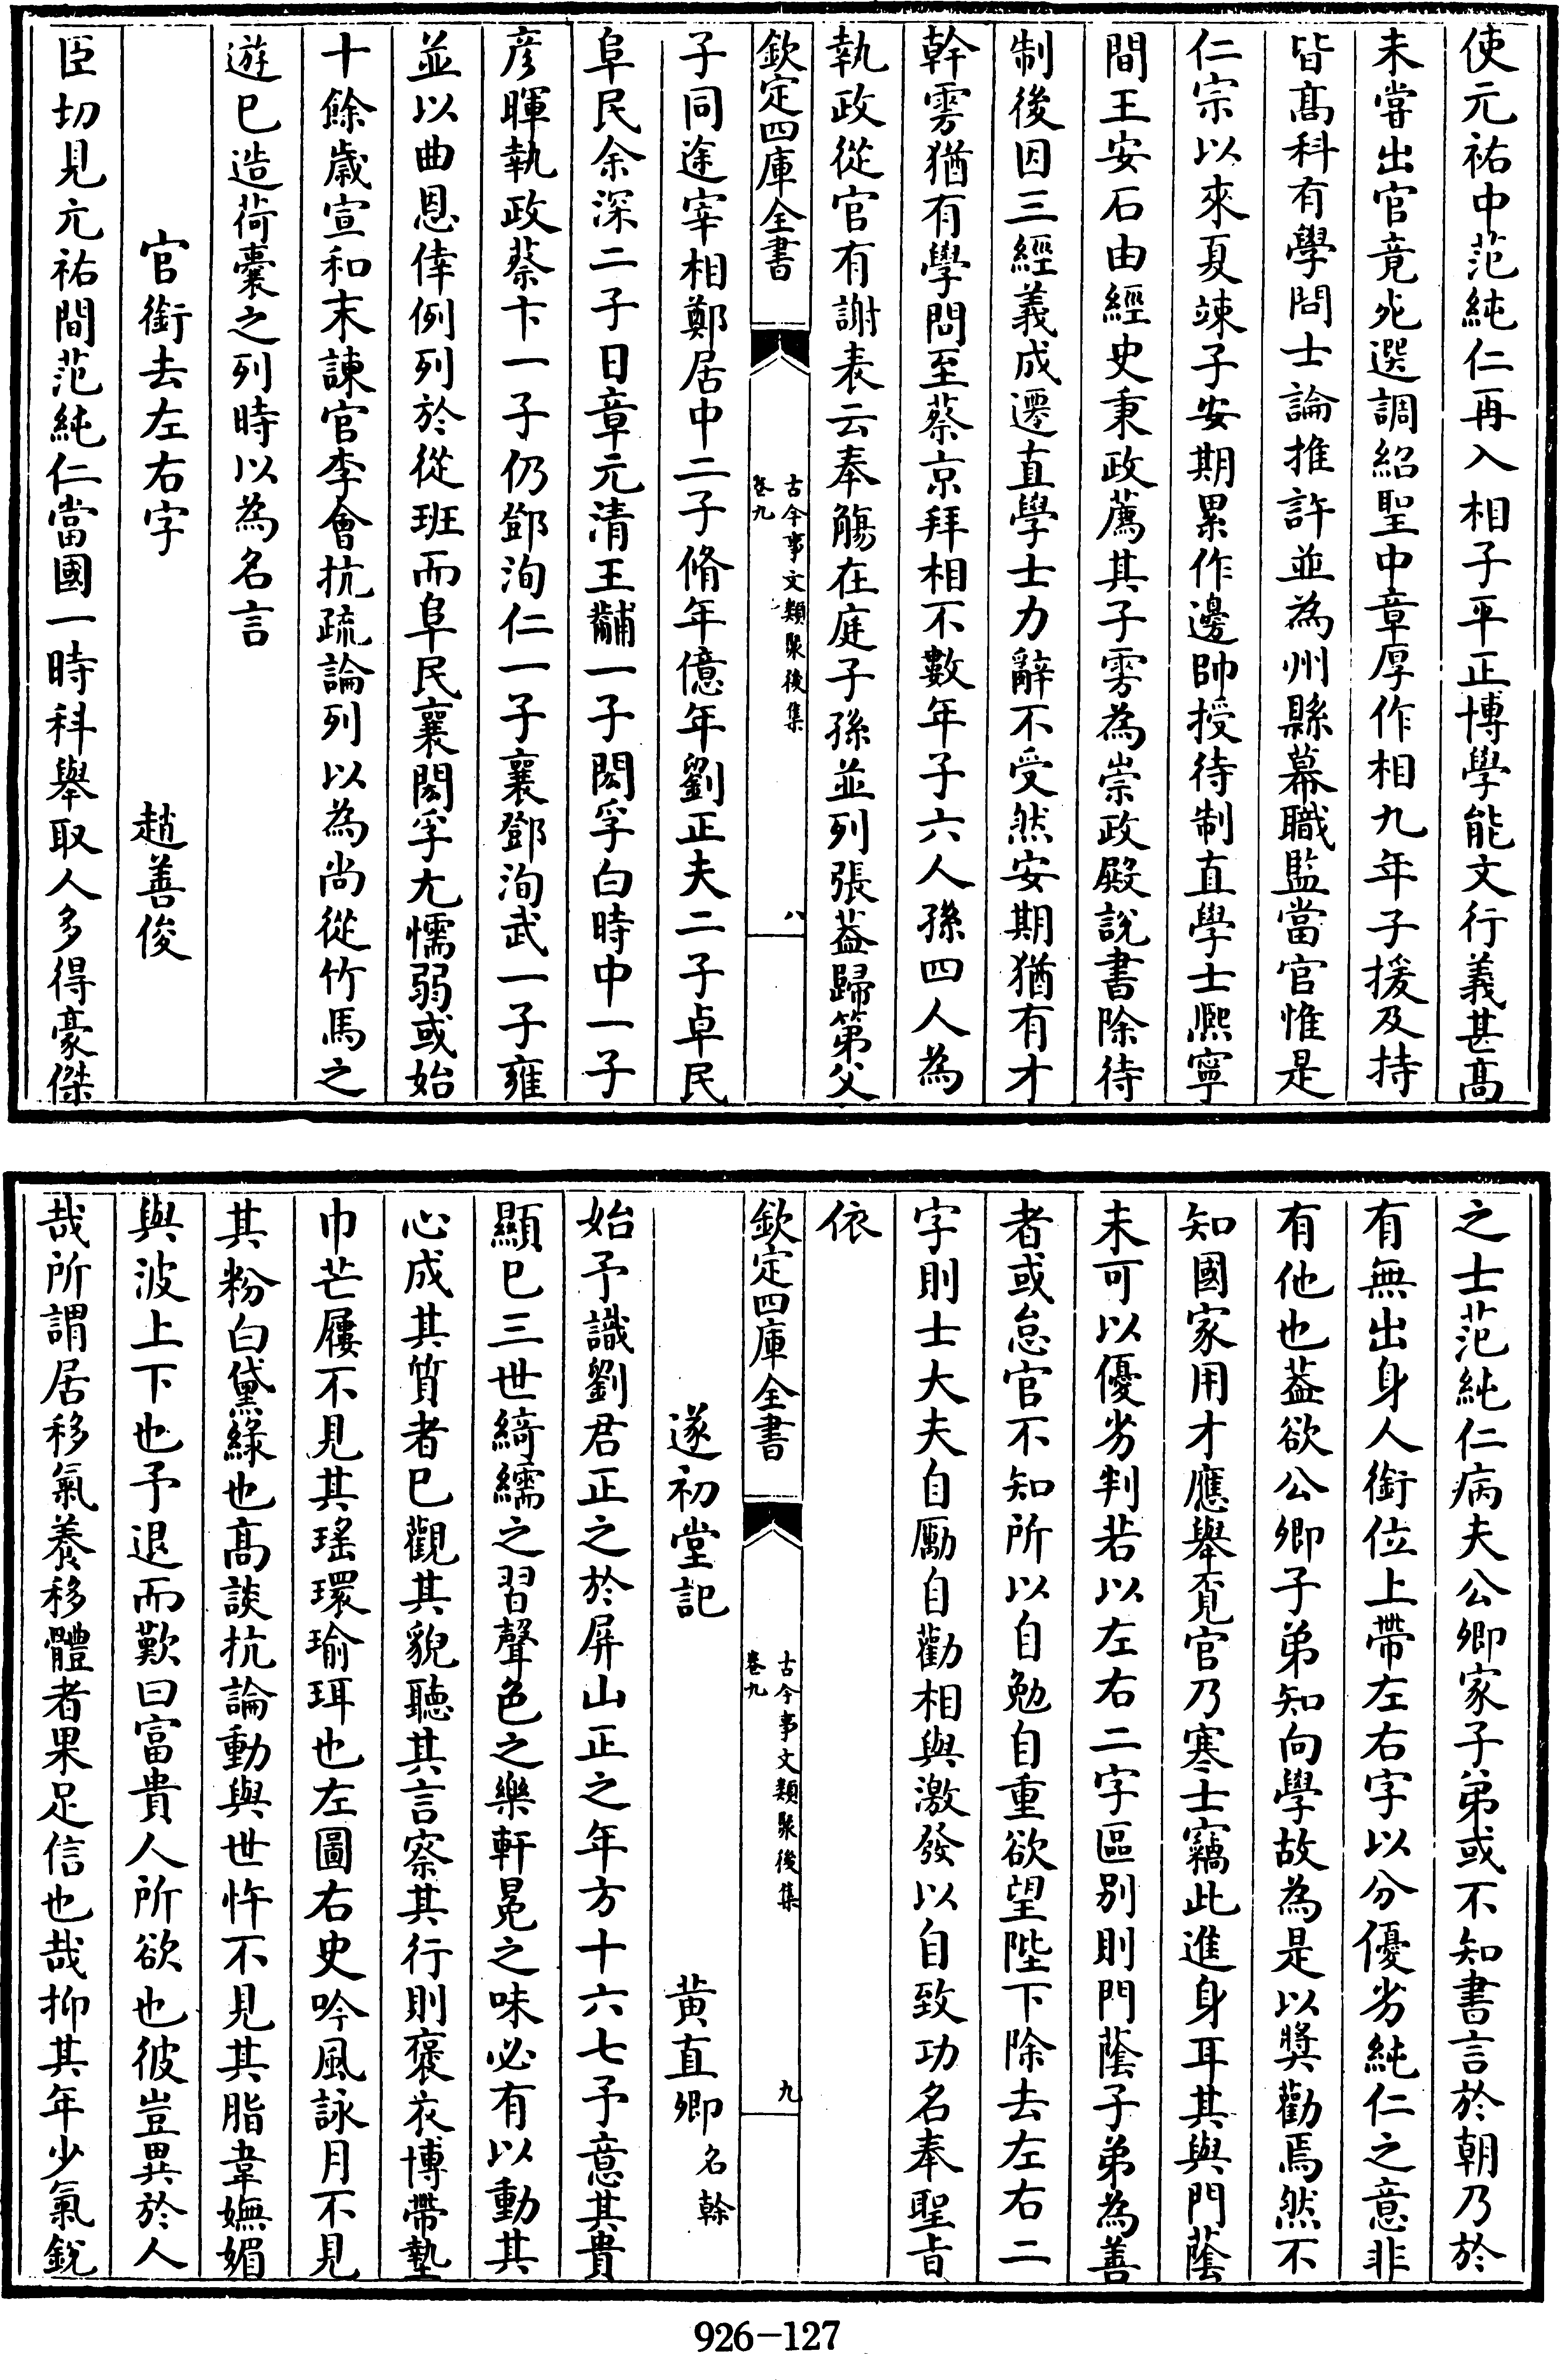 使元祐中范純仁再入相子平正博學能文行義甚髙
未甞出官竟死選調紹聖中章厚作相九年子援及持
皆髙科有學問士論推許並為州縣幕職監當官惟是
仁宗以來夏竦子安期累作邊帥授待制直學士熈寧
間王安石由經史秉政薦其子雱為崇政殿説書除待
制後因三經義成遷直學士力辭不受然安期猶有才
幹雱猶有學問至蔡京拜相不數年子六人孫四人為
執政從官有謝表云奉觴在庭子孫並列張葢歸第父
欽定四庫全書
古今事文類聚後集
卷九
八
子同途宰相鄭居中二子脩年億年劉正夫二子卓民
阜民余深二子日章元清王黼一子閎孚白時中一子
彦暉執政蔡卞一子仍鄧洵仁一子襄鄧洵武一子雍
並以曲恩倖例列於從班而阜民襄閎孚尤懦弱或始
十餘歳宣和末諫官李會抗疏論列以為尚從竹馬之
遊已造荷囊之列時以為名言
官銜去左右字
趙善俊
臣切見元祐間范純仁當國一時科舉取人多得豪傑
之士范純仁病夫公卿家子弟或不知書言於朝乃於
有無出身人銜位上帶左右字以分優劣純仁之意非
有他也葢欲公卿子弟知向學故為是以奬勸焉然不
知國家用才應舉覔官乃寒士竊此進身耳其與門䕃
未可以優劣判若以左右二字區别則門䕃子弟為善
者或怠官不知所以自勉自重欲望陛下除去左右二
字則士大夫自勵自勸相與激發以自致功名奉聖㫖
依
欽定四庫全書
古今事文類聚後集
卷九
九
遂初堂記
黄直卿名榦
始予識劉君正之於屏山正之年方十六七予意其貴
顯已三世綺繻之習聲色之樂軒冕之味必有以動其
心成其質者已觀其貌聽其言察其行則褒衣博帶墊
巾芒屨不見其瑤環瑜珥也左圖右史吟風詠月不見
其粉白黛緑也髙談抗論動與世忤不見其脂韋嫵媚
與波上下也予退而歎曰富貴人所欲也彼豈異於人
哉所謂居移氣養移體者果足信也哉抑其年少氣銳
926-127